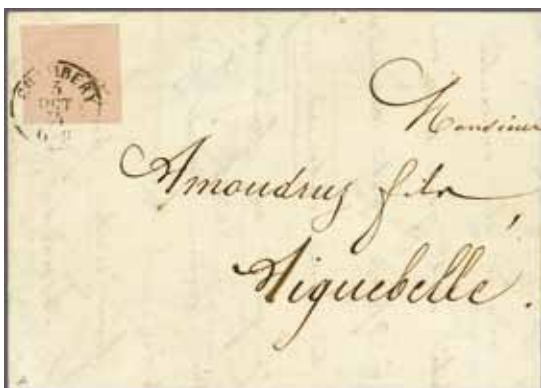 CHAMBERY
5
OCT
Monsieur
Amoudruz fils
Aiguebelle.